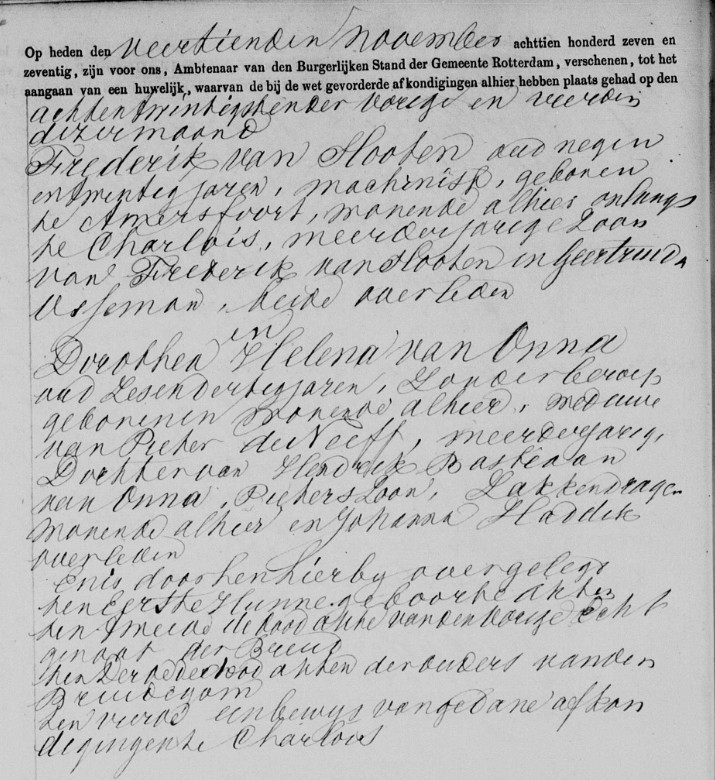 Op heden den veertienden November achttien honderd zeven en
zeventig, zijn voor ons, Ambtenaar van den Burgerlijken Stand der Gemeente Rotterdam, verschenen, tot het
aangaan van een huwelijk, waarvan de bij de wet gevorderde afkondigingen alhier hebben plaats gehad op den
achtentwintigsten der vorige en vierden
dezer maand
Frederik van Slooten oud negen
entwintig jaren, machinist, geboren
te Amersfoort, wonende alhier onlangs
te Charlois, meerderjarige Zoon
van Frederik van Slooten en Geertruida
Usseman, beide overleden
en
Dorothea Helena van Onna
oud Zesendertig jaren, Zonder beroep
geboren en wonende alhier, weduwe
van Pieter de Neeff, meerderjarige
Dochter van Hendrik Bastiaan
van Onna, Pieters Zoon, Zakkendrager
wonende alhier en Johanna Haddik
overleden
En is door hen hierby overgelegd
ten Eerste Hunne geboorte akten
ten Tweede de dood akte van den vorige Echt
genoot der Bruid
ten Derde de dood akten der ouders van den
Bruidegom
ten vierde een bewys van gedane afkon
digingen te Charlois